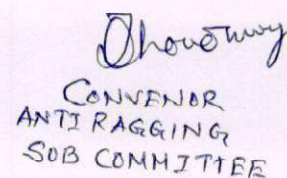 Choudhury
CONVENOR
ANTI RAGGING
SUB COMMITTEE